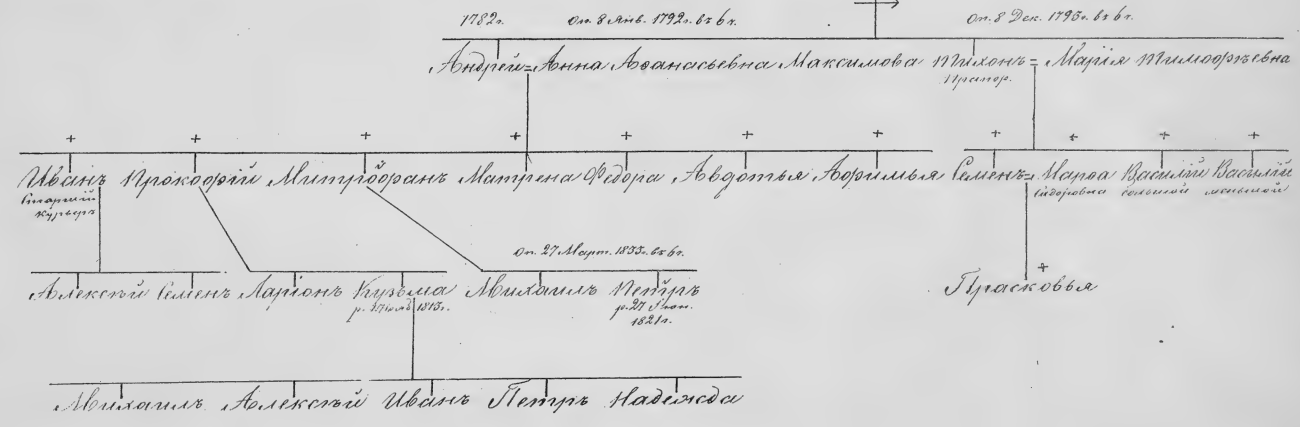 1782г. Оп. 8 Янв. 1792г. въ 6г. Оп. 8 Дек. 1795г. въ 6г.
Андрей = Анна Аѳанасьевна Максимова Тихонъ = Марія Тимоѳѣевна
Прапор.
Иванъ Прокофій Митрофанъ Матрена Федора Авдотья Афимья Семенъ = Марѳа Василій Василій
старшій Сидоровна большой меньшой
курьеръ
Оп. 27 Март. 1835г. въ 6г.
Алексѣй Семенъ Ларіонъ Кузьма Михаилъ Петръ Прасковья
1813г. р. 27 Іюн.
1821г.
Михаилъ Алексѣй Иванъ Петръ Надежда